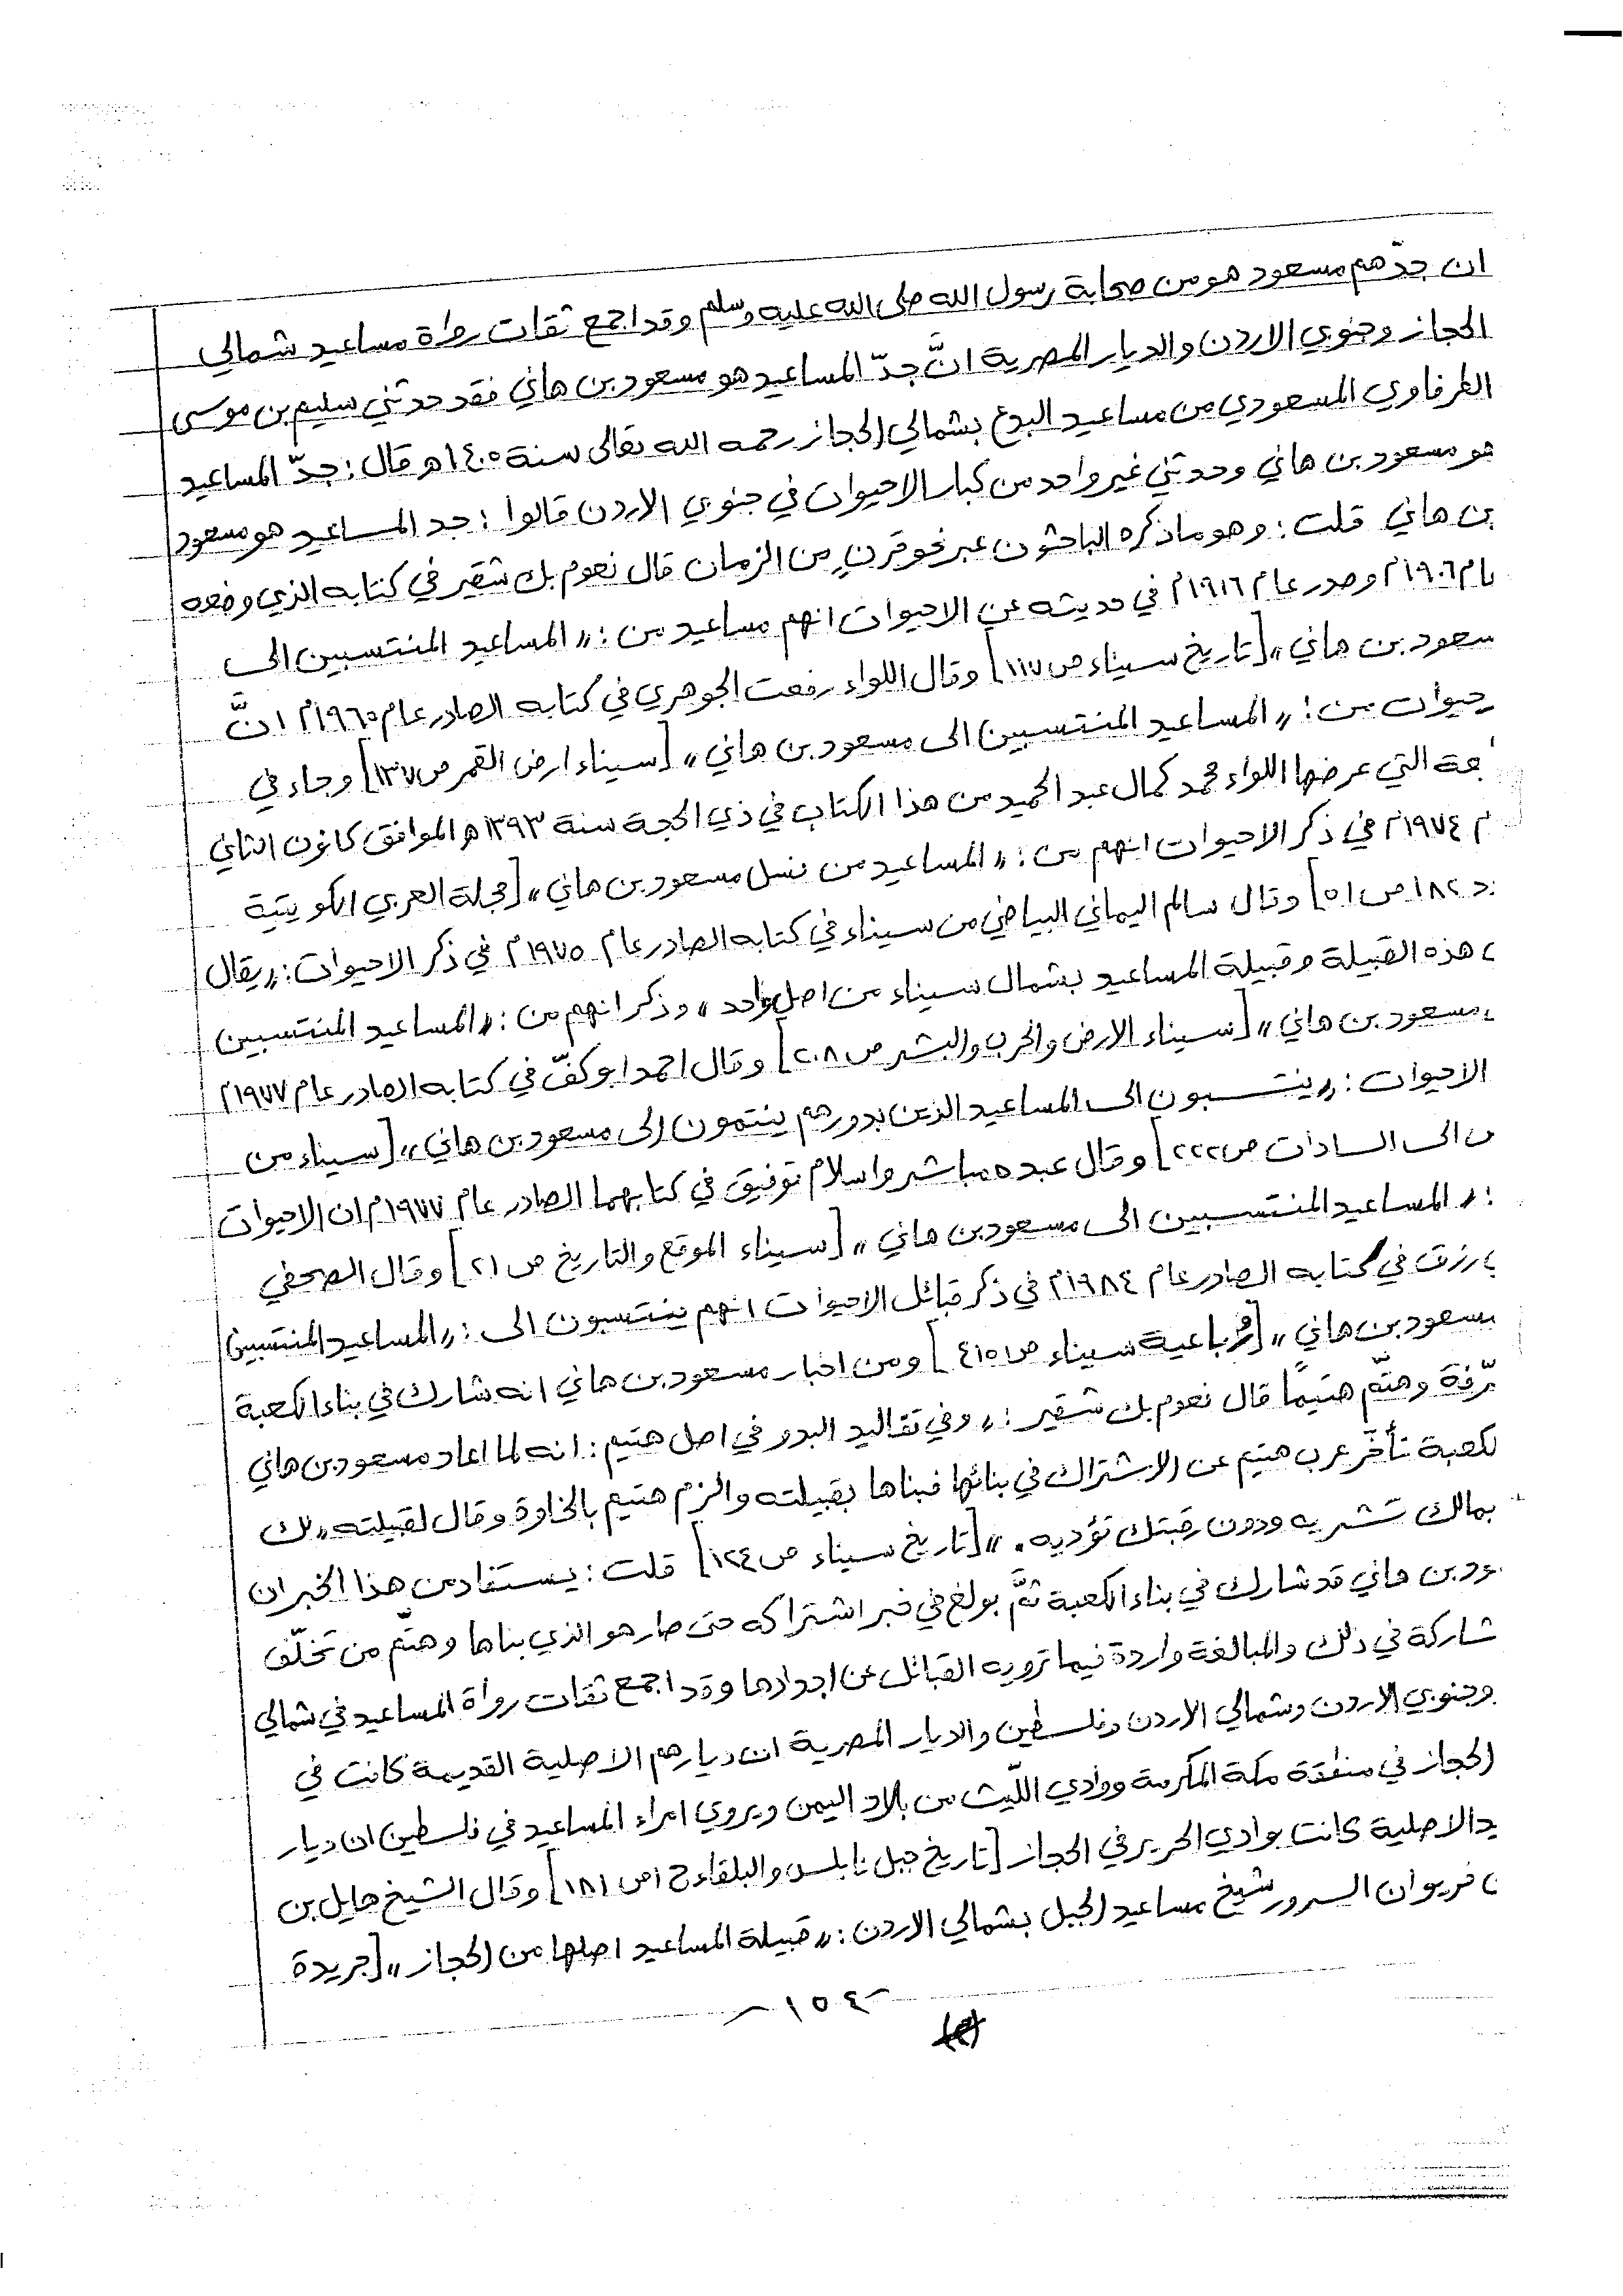 ان جدّهم مسعود هو من صحابة رسول الله صلى الله عليه وسلم وقد اجمع ثقات رواة مساعيد شمالي
الحجاز وجنوبي الاردن والديار المصرية انَّ جدّ المساعيد هو مسعود بن هاني فقد حدثني سليم بن موسى
الطرفاوي المسعودي من مساعيد البدع بشمالي الحجاز رحمه الله تعالى سنة ١٤٠٥هـ قال : جدّ المساعيد
هو مسعود بن هاني وحدثني غير واحد من كبار الاحيوات في جنوبي الاردن قالوا : جد المساعيد هو مسعود
بن هاني قلت : وهو ما ذكره الباحثون عبر نحو قرنٍ من الزمان قال نعوم بك شقير في كتابه الذي وضعه
ام ١٩٠٦م وصدر عام ١٩١٦م في حديثه عن الاحيوات انهم مساعيد من : « المساعيد المنتسبين الى
سعود بن هاني » [تاريخ سيناء ص ١١٧] وقال اللواء رفعت الجوهري في كتابه الصادر عام ١٩٦٥م انَّ
حيوات من : « المساعيد المنتسبين الى مسعود بن هاني » [سيناء ارض القمر ص ١٣٧] وجاء في
جعة التي عرضها اللواء محمد كمال عبد الحميد من هذا الكتاب في ذي الحجة سنة ١٣٩٣هـ الموافق كانون الثاني
م ١٩٧٤م في ذكر الاحيوات انهم من : « المساعيد من نسل مسعود بن هاني » [مجلة العربي الكويتية
د ١٨٢ ص ١٥١] وقال سالم اليماني البياضي من سيناء في كتابه الصادر عام ١٩٧٥م في ذكر الاحيوات : « يقال
هذه القبيلة وقبيلة المساعيد بشمال سيناء من اصل واحد » وذكر انهم من : « المساعيد المنتسبين
مسعود بن هاني » [سيناء الارض والحرب والبشر ص ٢٠٨] وقال احمد ابو كفّ في كتابه الصادر عام ١٩٧٧م
الاحيوات : « ينتسبون الى المساعيد الذين بدورهم ينتمون الى مسعود بن هاني » [سيناء من
س الى السادات ص ٢٢٢] وقال عبده مباشر واسلام توفيق في كتابهما الصادر عام ١٩٧٧م ان الاحيوات
: « المساعيد المنتسبين الى مسعود بن هاني » [سيناء الموقع والتاريخ ص ٢١] وقال الصحفي
رزق في كتابه الصادر عام ١٩٨٤م في ذكر قبائل الاحيوات انهم ينتسبون الى : « المساعيد المنتسبين
مسعود بن هاني » [رباعية سيناء ص ٤١٥١] ومن اخبار مسعود بن هاني انه شارك في بناء الكعبة
رّفة وهتّم هتيمًا قال نعوم بك شقير : « وفي تقاليد البدو في اصل هتيم : انه لما اعاد مسعود بن هاني
لكعبة تأخّر عرب هتيم عن الاشتراك في بنائها فبناها بقبيلته والزم هتيم بالخاوة وقال لقبيلته « لك
بمالك تشريه ودون رقبتك تؤديه . » [تاريخ سيناء ص ١٢٤] قلت : يستفاد من هذا الخبر ان
ود بن هاني قد شارك في بناء الكعبة ثمَّ بولغ في خبر اشتراكه حتى صار هو الذي بناها وهتّم من تخلّف
شاركة في ذلك والمبالغة واردة فيما ترويه القبائل عن اجدادها وقد اجمع ثقات رواة المساعيد في شمالي
وجنوبي الاردن وشمالي الاردن وفلسطين والديار المصرية ان ديارهم الاصلية القديمة كانت في
الحجاز في منطقة مكة المكرمة ووادي اللّيث من بلاد اليمن ويروي امراء المساعيد في فلسطين ان ديار
يد الاصلية كانت بوادي الحرير في الحجاز [تاريخ جبل نابلس والبلقاء ج ١ ص ١٨١] وقال الشيخ هايل بن
فريوان السرور شيخ مساعيد الجبل بشمالي الاردن : « قبيلة المساعيد اصلها من الحجاز » [جريدة
- ١٥٤ -